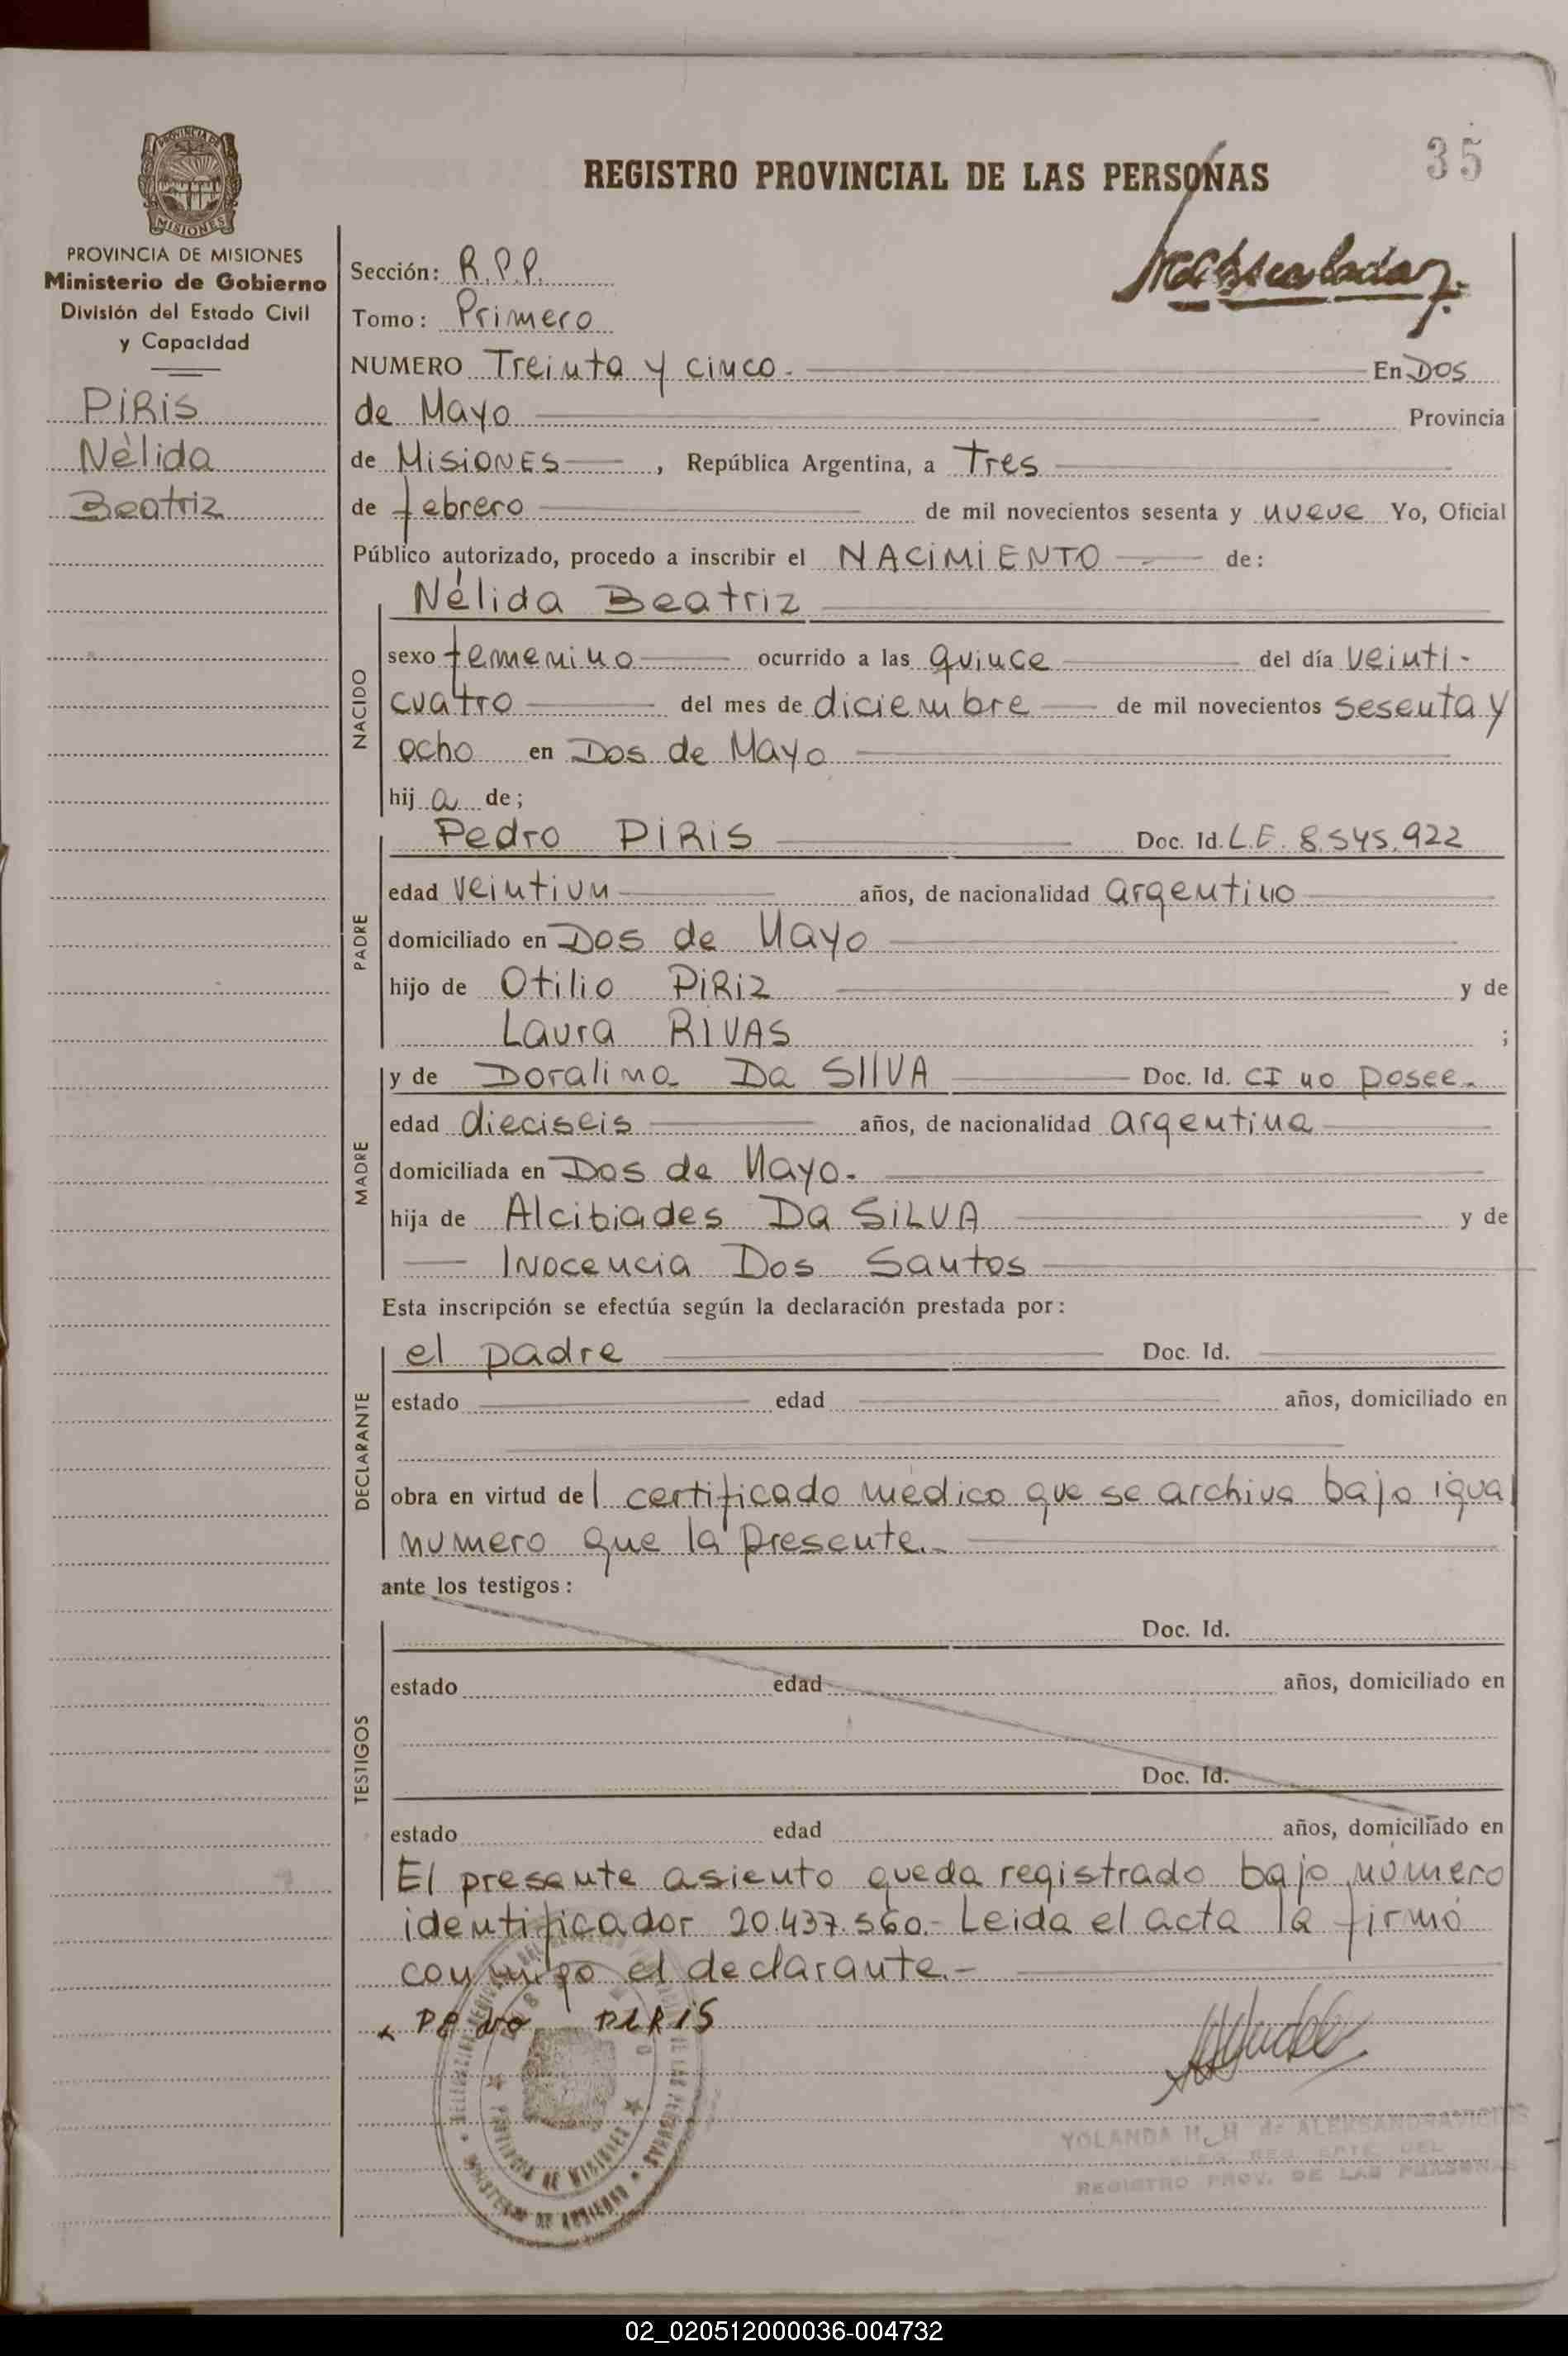 REGISTRO PROVINCIAL DE LAS PERSONAS
35
PROVINCIA DE MISIONES
Ministerio de Gobierno
División del Estado Civil
y Capacidad
PIRIS
Nèlida
Beatriz
Sección: R.P.P.
Tomo: Primero
NUMERO Treinta y cinco.- En Dos
de Mayo Provincia
de MISIONES, República Argentina, a Tres
de febrero de mil novecientos sesenta y nueve Yo, Oficial
Público autorizado, procedo a inscribir el NACIMIENTO de:
NACIDO
Nélida Beatriz
sexo femenino ocurrido a las quince del día veinti-
cuatro del mes de diciembre de mil novecientos sesenta y
ocho en Dos de Mayo
hija de;
PADRE
Pedro PIRIS Doc. Id. L.E. 8.545.922
edad veintiun años, de nacionalidad argentino
domiciliado en Dos de Mayo
hijo de Otilio PIRIZ y de
Laura RIVAS ;
MADRE
y de Doralina Da SIlVA Doc. Id. CI no posee.
edad dieciseis años, de nacionalidad argentina
domiciliada en Dos de Mayo.
hija de Alcibiades Da SILVA y de
Inocencia Dos Santos
Esta inscripción se efectúa según la declaración prestada por:
DECLARANTE
el padre Doc. Id.
estado edad años, domiciliado en
obra en virtud del certificado médico que se archiva bajo igual
numero que la presente.-
ante los testigos:
TESTIGOS
Doc. Id.
estado edad años, domiciliado en
Doc. Id.
estado edad años, domiciliado en
El presente asiento queda registrado bajo número
identificador 20.437.560.- Leida el acta la firmó
conmigo el declarante.-
x Pedro PIRIS
PROVINCIA DE MISIONES
MINISTERIO DE GOBIERNO
YOLANDA H. H. de
REGISTRO PROV. DE LAS PERSONAS
02_020512000036-004732